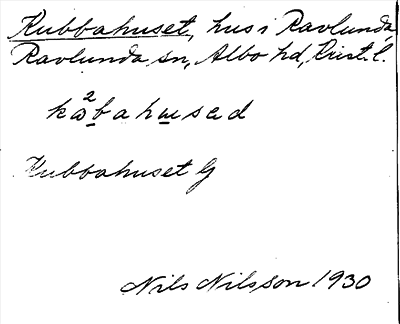 Kubbahuset, hus i Ravlunda,
Ravlunda sn, Albo hd, Krist. l.
kω²bahɯsəd
Kubbahuset G
Nils Nilsson 1930